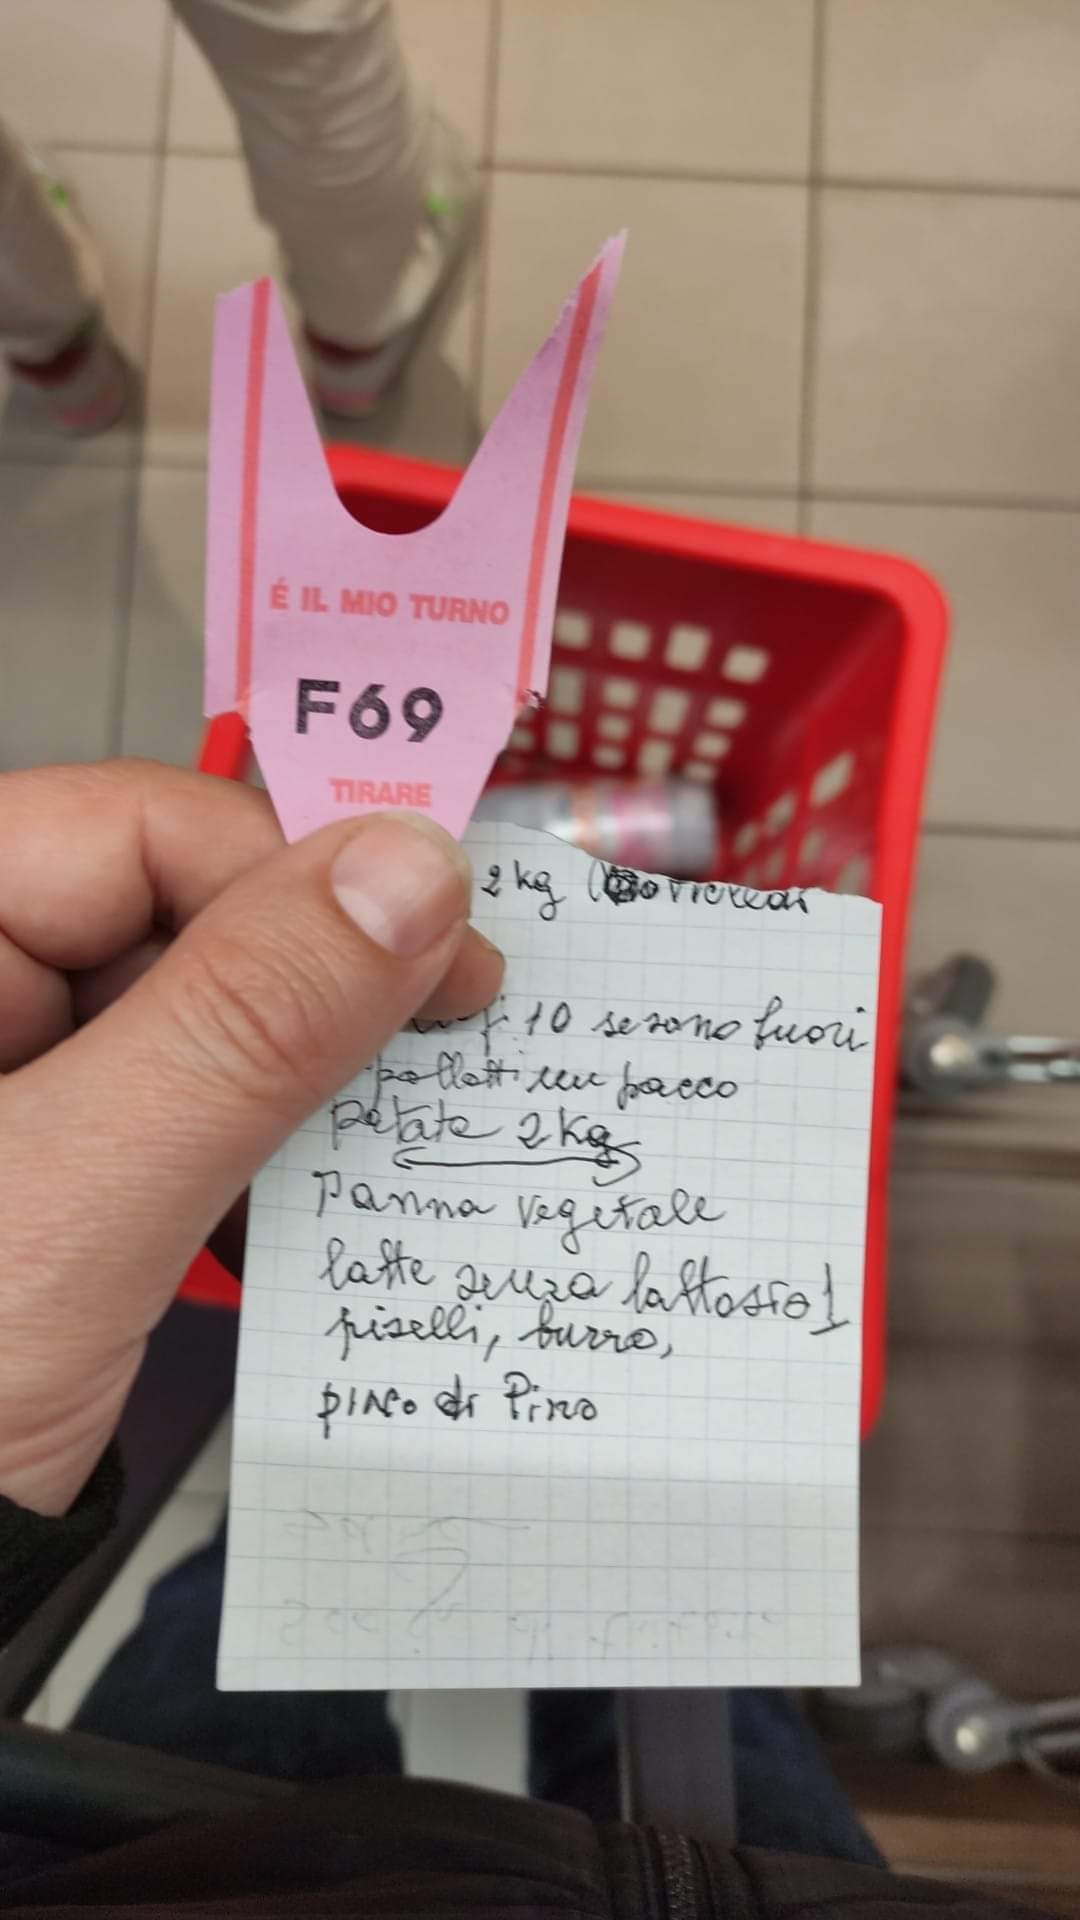 É IL MIO TURNO
F69
TIRARE
2 kg
10 se sono fuori
un pacco
patate 2 kg
Panna vegetale
latte senza lattosio 1
piselli, burro,
di Pino